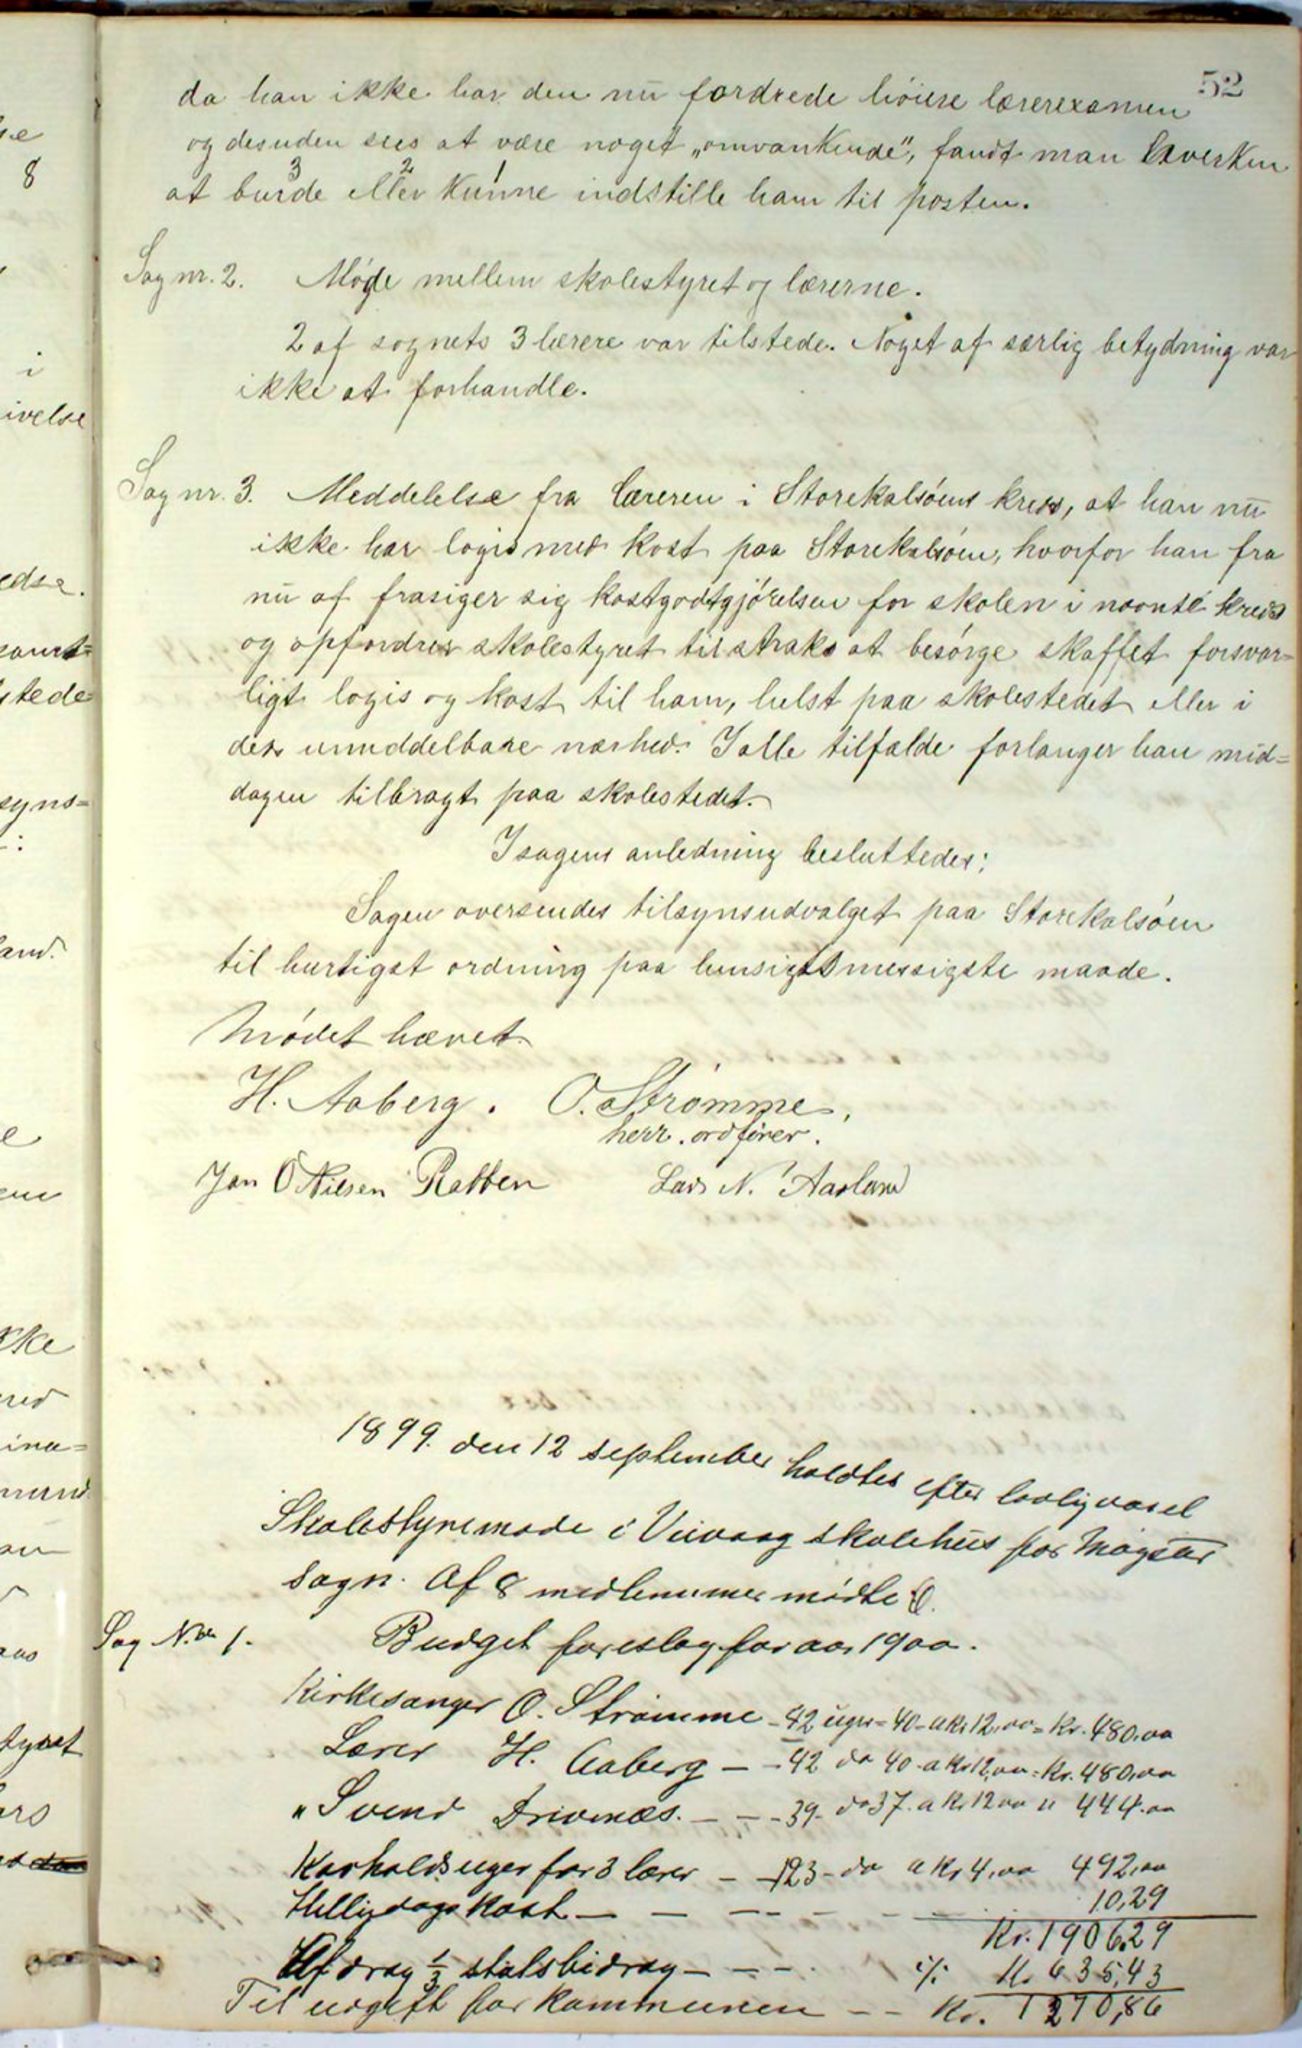 52
da han ikke har den nu fordrede höiere lærerexamen
og desuden sees at være noget „omvankende", fandt man hverken
at burde eller kunne indstille ham til posten.
Sag nr. 2. Møde mellem skolestyret og lærerne.
2 af sognets 3 lærere var tilstede. Noget af særlig betydning var
ikke at forhandle.
Sag nr. 3. Meddelelse fra læreren i Storekalsöens kreds, at han nu
ikke har logis med kost paa Storekalsöen, hvorfor han fra
nu af frasiger sig kostgodtgjörelsen for skolen i nævnte kreds
og opfordrer skolestyret til straks at besörge skaffet forsvar=
ligt logis og kost til ham, helst paa skolestedet eller i
dets umiddelbare nærhed. I alle tilfælde forlanger han mid=
dagen tilbragt paa skolestedet.
I sagens anledning besluttedes:
Sagen oversendes tilsynsudvalget paa Storekalsöen
til hurtigst ordning paa hensigtsmessigste maade.
Mödet hævet.
H. Aaberg. O. Strømme,
herr. ordfører.
Jan O Nilsen Rabben Lars N. Aarland
1899. den 12 september holdtes efter lovlig varsel
Skolestyremøde i Viivaag skolehus for Møgster
sogn. Af 8 medlemmer mödte
Sag No 1. Budget foreslag for aar 1900.
Kirkesanger O. Strömme - 42 uger = 40 - a Kr 12,00 = Kr. 480,00
Lærer H. Aaberg — - 42 do 40 - a Kr 12,00 = Kr. 480,00
" Svend Drivenæs. — — - 39 - do 37 - a Kr 12 00 " 444.00
Kosholdsuger for 3 lærer — 123 - do a Kr 4,00 492,00
Helligdags Kost — — — — — 10,29
Kr. 1906,29
Afdrag 1/3 statsbidrag — — — ·/· Kr. 635,43
Til udgift for kommunen — — Kr. 1270,86